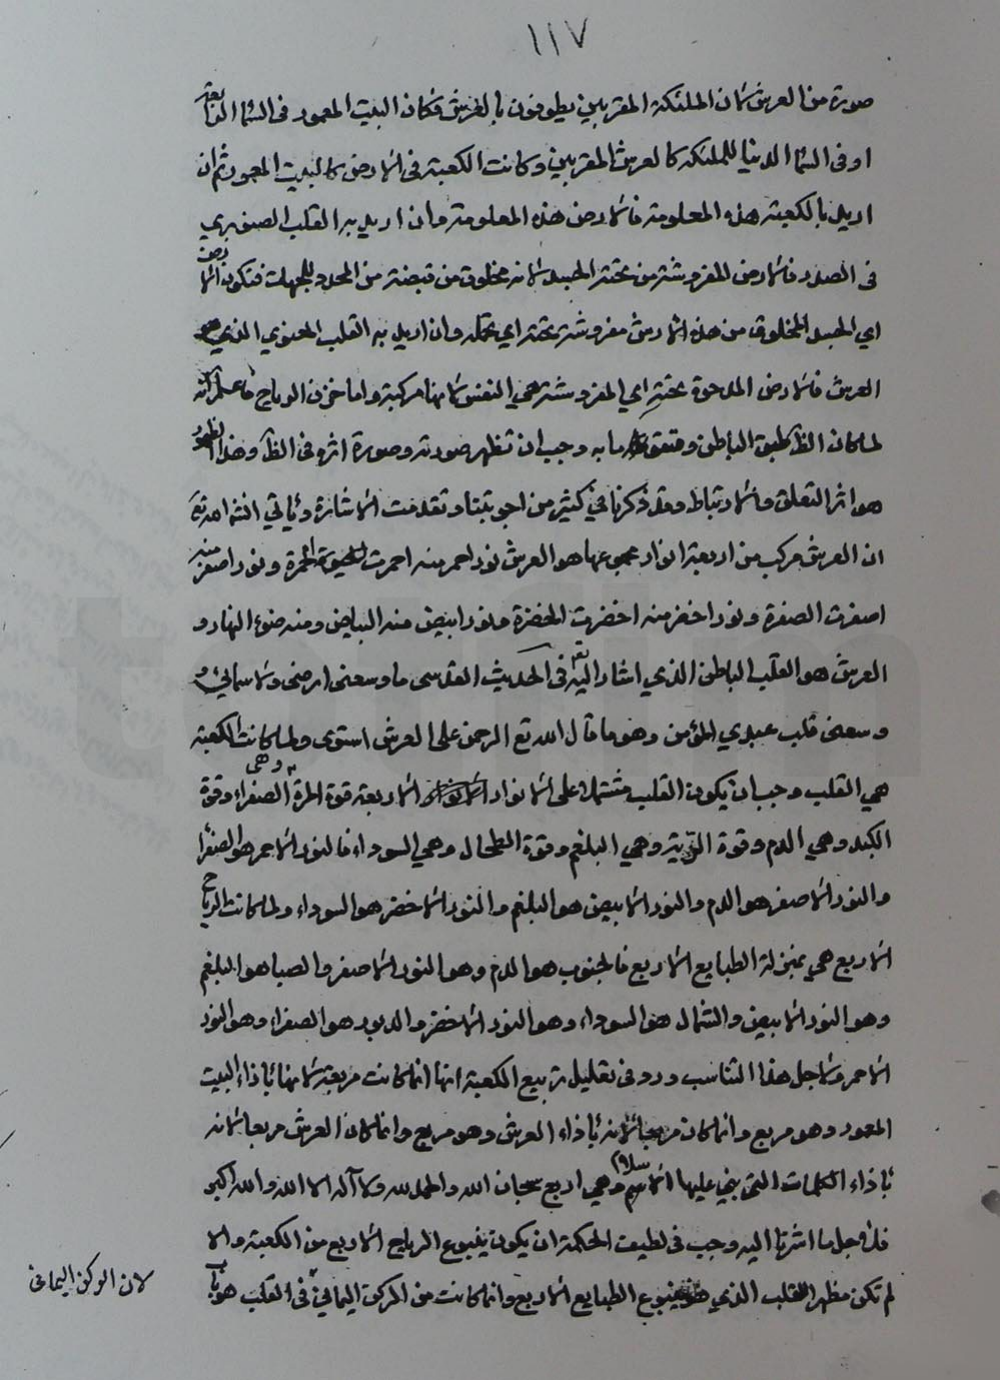 ١١٧
صورة من العرش لان الملئكة المقربين يطوفون بالعرش فكان البيت المعمور فى السماء الرابعة
او فى السماء الدنيا للملئكة كالعرش للمقربين وكانت الكعبة فى الارض كالبيت المعمور ثم ان
اريد بالكعبة هذه المعلومة فالارض هذه المعلومة وان اريد به القلب الصنوبري
فى الصدر فالارض المفروشة من تحته الجسد لانه مخلوق من قبضة من المحدد للجهات فتكون الارض
اي الجسد المخلوق من هذه الارض مفروشة تحته اي محله وان اريد به القلب المعنوي الذي هو
العرش فالارض المدحوة تحته اي المفروشة هي النفس لانها مركبة واما خزن الرياح فاعلم انه
لما كان الظ طبق الباطن ومتعلق ما به وجب ان تظهر صورته وصورة اثره فى الظ وهذا الظهور
هو اثر التعلق والارتباط وقد ذكرنا في كثير من اجوبتنا وتقدمت الاشارة وياتي انش الله تع
ان العرش مركب من اربعة انوار مجموعها هو العرش نور احمر منه احمرت الحمرة ونور اصفر منه
اصفرت الصفرة ونور اخضر منه اخضرت الخضرة ونور ابيض منه البياض ومنه ضوء النهار و
العرش هو القلب الباطن الذي اشار اليه تع فى الحديث القدسى ما وسعنى ارضى ولا سمائي و
وسعنى قلب عبدي المؤمن وهو ما قال الله تع الرحمن على العرش استوى ولما كانت الكعبة
هي القلب وجب ان يكون القلب مشتملا على الانوار الاربعة وهى قوة المرة الصفراء وقوة
الكبد وهي الدم وقوة الرية وهي البلغم وقوة الطحال وهي السوداء فالنور الاحمر هو الصفرا
والنور الاصفر هو الدم والنور الابيض هو البلغم والنور الاخضر هو السوداء ولما كانت الرياح
الاربع هي بمنزلة الطبايع الاربع فالجنوب هو الدم وهو النور الاصفر والصبا هو البلغم
وهو النور الابيض والشمال هو السوداء وهو النور الاخضر والدبور هو الصفراء وهو النور
الاحمر ولاجل هذا التناسب ورد فى تعليل تربيع الكعبة انها انما كانت مربعة لانها باذاء البيت
المعمور وهو مربع وانما كان مربعا لانه باذاء العرش وهو مربع وانما كان العرش مربعا لانه
باذاء الكلمات التى بني عليها الاسلام وهي اربع سبحان الله والحمد لله ولا آله الا الله والله اكبر
فلاجل ما اشرنا اليه وجب فى لطيف الحكمة ان يكون ينبوع الرياح الاربع من الكعبة والا
لم تكن مظهر القلب الذي هو ينبوع الطبايع الاربع وانما كانت من الركن اليماني فى القلب هو باب
لان الركن اليمانى